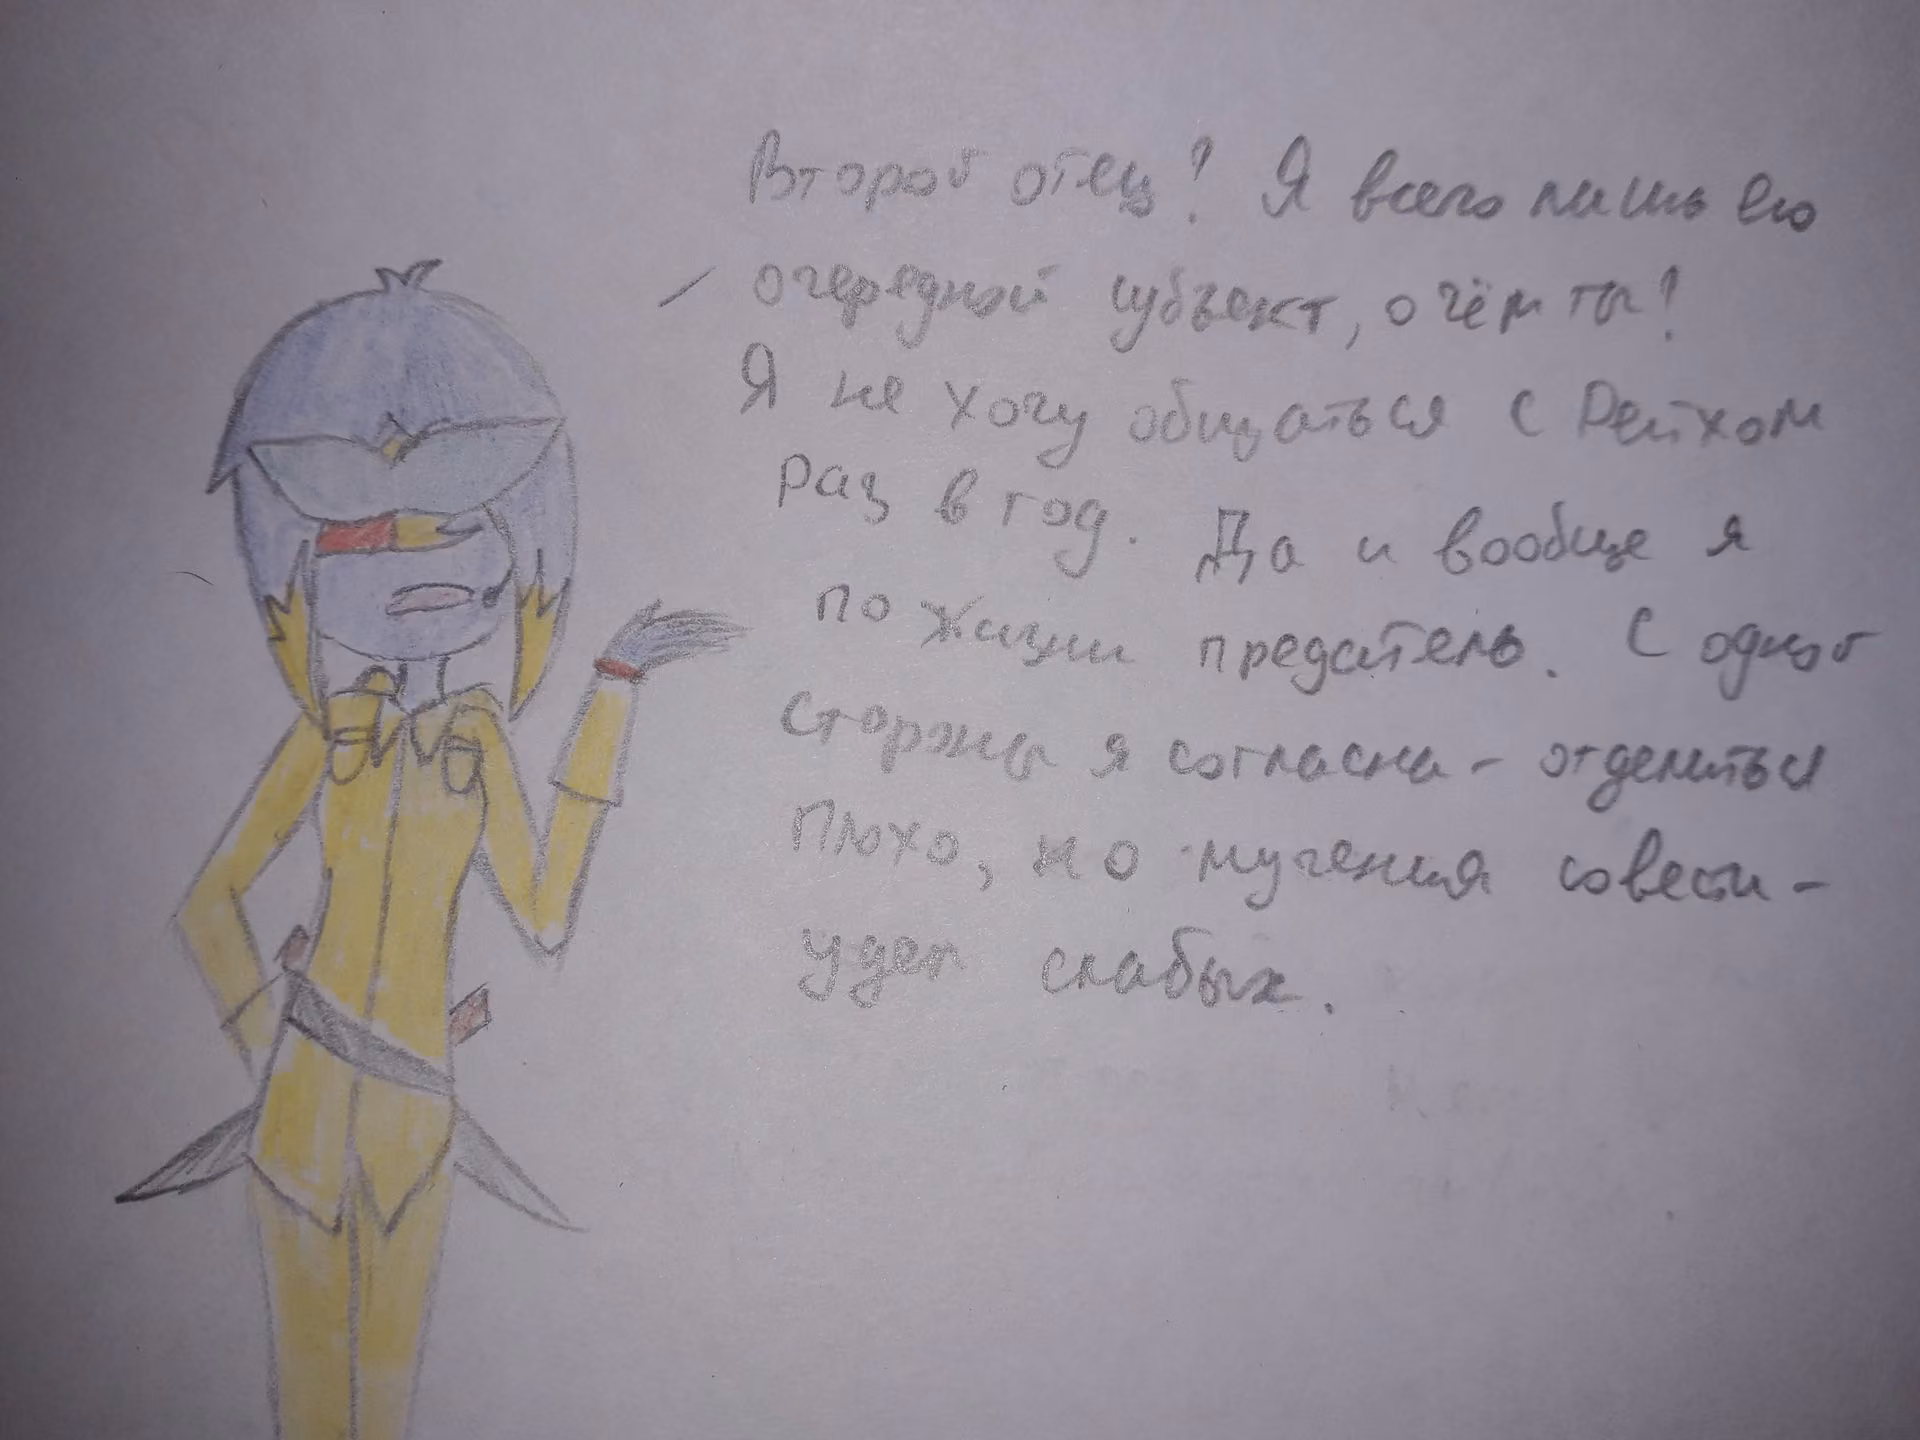 Второй отец? Я всего лишь его
очередной субъект, о чём ты?
Я не хочу общаться с Рейхом
раз в год. Да и вообще я
по жизни предатель. С одной
стороны я согласна - отделиться
плохо, но мучения совести -
удел слабых.